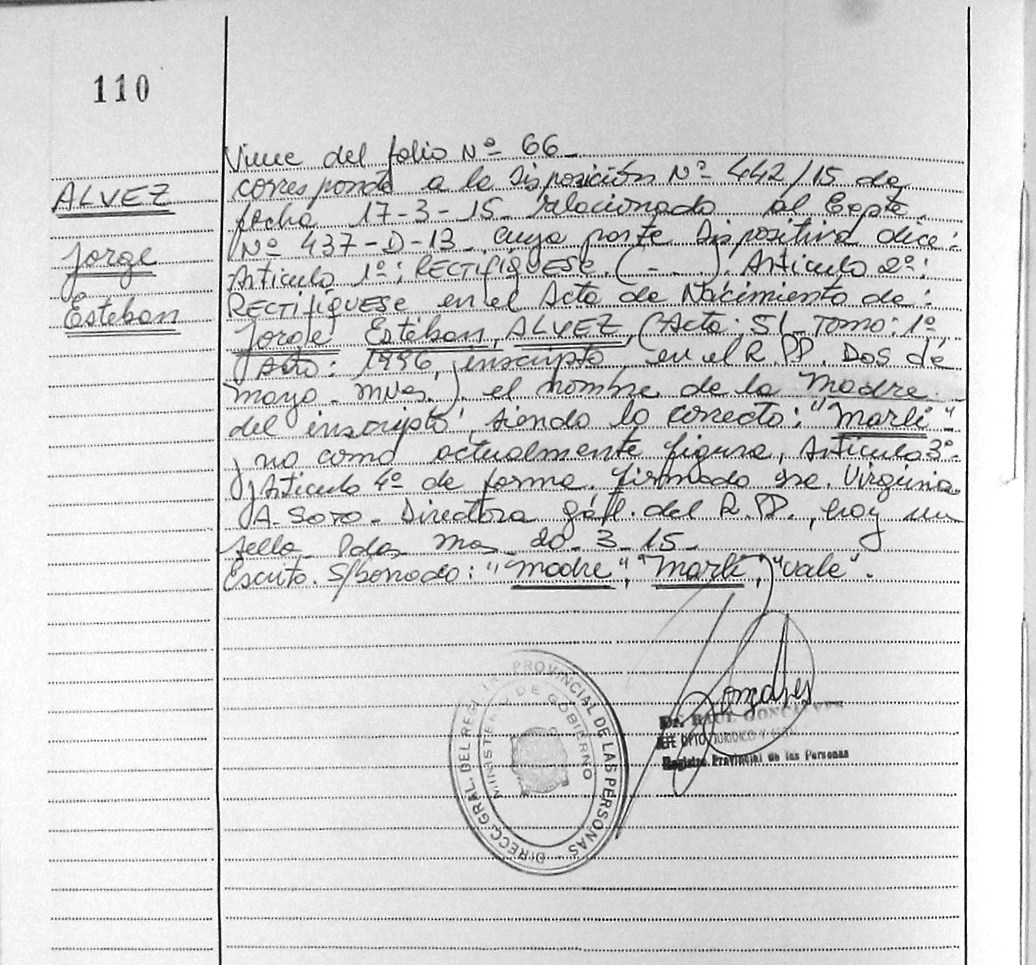 110
ALVEZ
Jorge
Esteban
Viene del folio Nº 66_
corresponde a la Disposición Nº 442/15 de
fecha 17-3-15 relacionado al Expte.
Nº 437-D-13 cuya parte Dispositiva dice:
Articulo 1º: RECTIFIQUESE. (- - -). Articulo 2º:
RECTIFIQUESE en el Acta de Nacimiento de:
Jorge Esteban, ALVEZ, (Acta: 51_ Tomo: 1º
Año: 1996, inscripto en el R.PP. Dos de
mayo. Mnes.). el nombre de la madre
del inscripto, siendo lo correcto: "Marli"
y no como actualmente figura, Articulo 3º
y Articulo 4º de forma. firmado Virginia
A. Soto. Directora gral. del R.PP., hay un
sello. Pdas Mnes. 20_3_15_
Escrito. S/borrado: "madre", "Marli", "vale".
DIRECC. GRAL. DEL REG PROVINCIAL DE LAS PERSONAS
MINISTERIO DE GOBIERNO
Dr. RAUL
JEFE DPTO. JURIDICO Y
Registro Provincial de las Personas